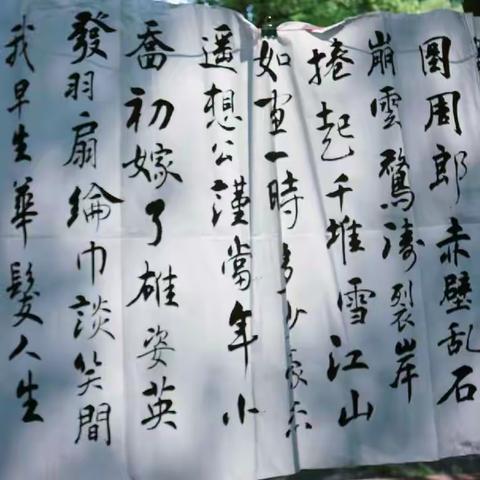 國周郎赤壁乱石
崩雲驚濤裂岸
捲起千堆雪江山
如画一時多少豪杰
遥想公瑾當年小
喬初嫁了雄姿英
發羽扇綸巾談笑間
我早生華髮人生